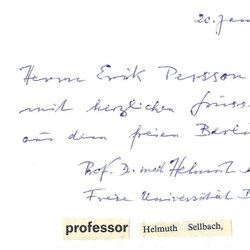 20. Jan
Herrn Erik Persson
mit herzlichen Grüss
aus dem freien Berli
Prof. D. med Helmut
Freie Universität B
professor Helmuth Sellbach,